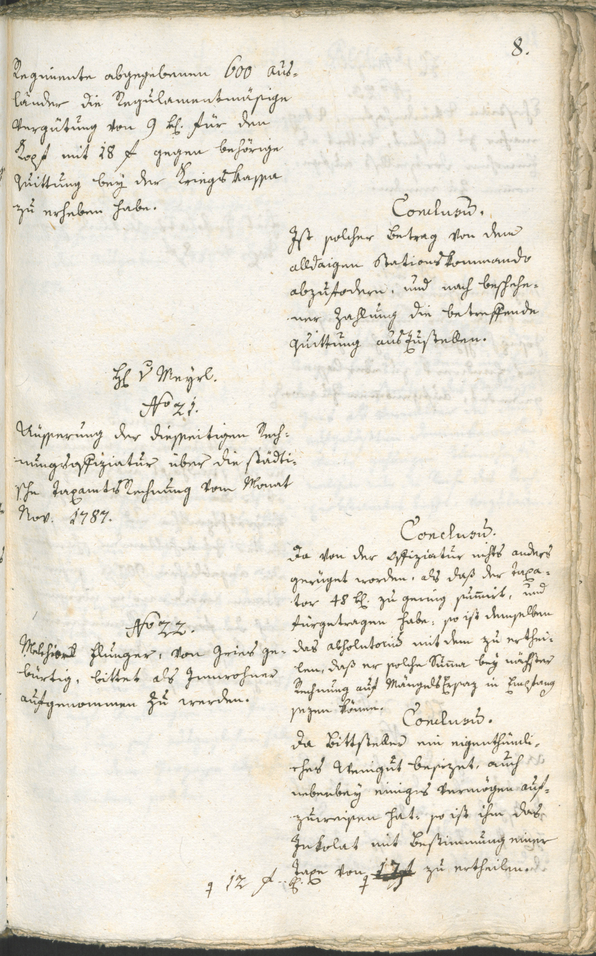 8.
Regimente abgegebenen 600 Aus-
länder die Regulamentmäsige
Vergütung von 9 kr. für den
Kopf mit 18 f gegen behörige
Quittung bey der Kriegs Kassa
zu erheben habe.
Conclusū.
Ist solcher Betrag von dem
alldaigen Stations Kommando
abzufodern, und nach beschehe-
ner Zahlung die betreffende
Quittung auszustellen.
Meyrl.
No 21.
Äusserung der diesseitigen Rech-
nungsoffiziatur über die städti-
sche Taxamts Rechnung vom Monat
Nov. 1787.
Conclusū.
Da von der Offiziatur nichts anders
gerüget worden, als daß der Taxa-
tor 48 kr. zu gering sumirt, und
fürgetragen habe; so ist demselben
das absolutoriū mit dem zu erthei-
len, daß er solche Suma bey nächster
Rechnung auf Mängels Ersaz in Empfang
sezen könne.
No 22.
Melchior Hunger, von Gries ge-
bürtig, bittet als Innwohner
aufgenommen zu werden.
Conclusū.
Da Bittsteller ein eigenthümli-
ches Weingut besizet, auch
nebenbey einiges Vermögen auf-
zuweisen hat; so ist ihm das
Inkolat mit Bestimmung einer
Taxe von zu ertheilen.
12 f